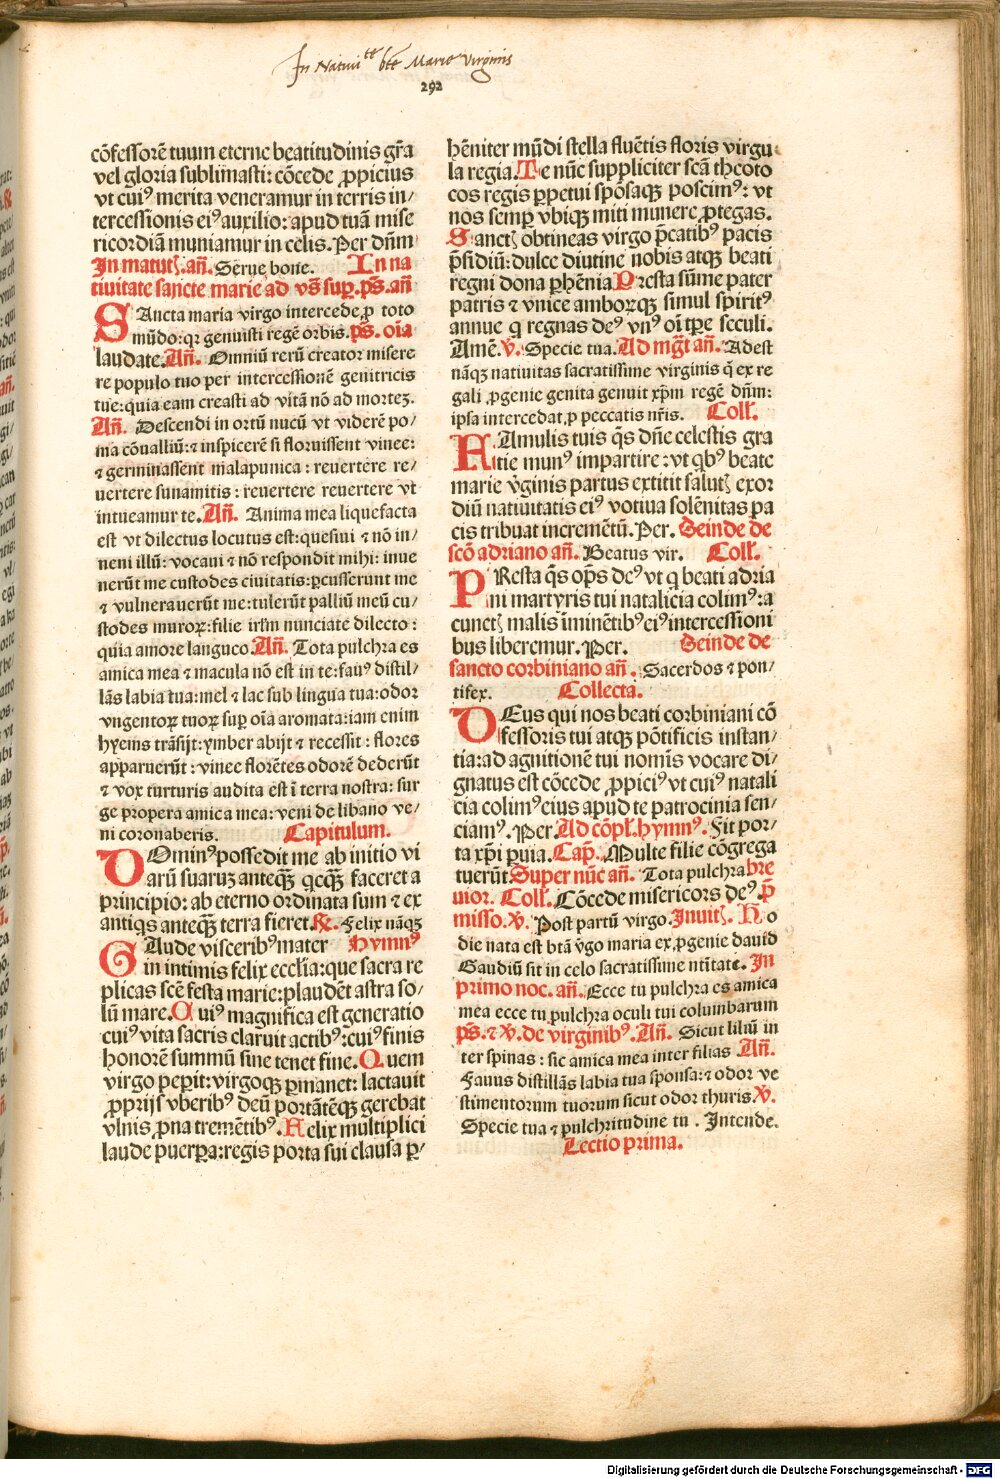 In Natiuite bte Marie virginis
292
cōfessorē tuum eterne beatitudinis gr̄a
vel gloria sublimasti: cōcede ꝓpicius
vt cuiꝰ merita veneramur in terris in/
tercessionis eiꝰ auxilio: apud tuā mise
ricordiā muniamur in celis. Per dn̄m
In matutꝭ. an̄. Serue bone. In na
tiuitate sancte marie ad vs̄ sup̲. ps̄. an̄
SAncta maria virgo intercede ꝓ toto
mūdo: qꝛ genuisti regē orbis. ps̄. oīa
laudate. An̄. Omniū rerū creator misere
re populo tuo per intercessionē genitricis
tue: quia eam creasti ad vitā nō ad morteꝫ.
An̄. Descendi in ortū nucū vt viderē po/
ma cōualliū: ⁊ inspicerē si floruissent vinee:
⁊ germinassent malapunica: reuertere re/
uertere sunamitis: reuertere reuertere vt
intueamur te. An̄. Anima mea liquefacta
est vt dilectus locutus est: quesiui ⁊ nō in/
neni illū: vocaui ⁊ nō respondit mihi: inue
nerūt me custodes ciuitatis: ꝑcusserunt me
⁊ vulnerauerūt me: tulerūt palliū meū cu/
stodes muroꝝ: filie irl̄m nunciate dilecto:
quia amore langueo. An̄. Tota pulchra es
amica mea ⁊ macula nō est in te: fauꝰ distil/
lās labia tua: mel ⁊ lac sub lingua tua: odor
vngentoꝝ tuoꝝ sup̲ oīa aromata: iam enim
hyems trāsijt: ymber abijt ⁊ recessit: flores
apparuerūt: vinee florētes odorē dederūt
⁊ vox turturis audita est ī terra nostra: sur
ge propera amica mea: veni de libano ve/
ni coronaberis. Capitulum.
DOminꝰ possedit me ab initio vi
arū suaruꝫ anteqꝫ̄ qcqꝫ̄ faceret a
principio: ab eterno ordinata sum ⁊ ex
antiqs anteqꝫ̄ terra fieret. ℟. Felix nāqꝫ
GAude visceribꝰ mater Hymnꝰ
in intimis felix eccl̄ia: que sacra re
plicas scē festa marie: plaudēt astra so/
lū mare. Cuiꝰ magnifica est generatio
cuiꝰ vita sacris claruit actibꝰ: cuiꝰ finis
honorē summū sine tenet fine. Quem
virgo peꝑit: virgoqꝫ ꝑmanet: lactauit
ꝓprijs vberibꝰ deū portātēqꝫ gerebat
vlnis ꝓna tremētibꝰ. Felix multiplici
laude puerꝑa: regis porta sui clausa ꝑ/
hēniter mūdi stella fluētis floris virgu
la regia. Te nūc suppliciter scā theoto
cos regis ꝑpetui spōsaqꝫ poscimꝰ: vt
nos semꝑ vbiqꝫ miti munere ꝓtegas.
Sanctꝭ obtineas virgo p̄catibꝰ pacis
p̄sidiū: dulce diutine nobis atqꝫ beati
regni dona ꝑhēnia Presta sūme pater
patris ⁊ vnice amboꝝqꝫ simul spiritꝰ
annue q regnas deꝰ vnꝰ oī tꝑe seculi.
Amē. ℣. Specie tua. Ad mg̅t an̄. Adest
nāqꝫ natiuitas sacratissime virginis q̄ ex re
gali ꝓgenie genita genuit xp̄m regē dn̄m:
ipsa intercedat ꝓ peccatis nr̄is. Coll̄.
FAmulis tuis q̄s dn̄e celestis gra
tie munꝰ impartire: vt qbꝰ beate
marie v̄ginis partus extitit salutꝭ exor
diū natiuitatis eiꝰ votiua solēnitas pa
cis tribuat incremētū. Per. Deinde de
scō adriano an̄. Beatus vir. Coll̄.
PResta q̄s op̄s deꝰ vt q beati adria
ni martyris tui natalicia colimꝰ: a
cunctꝭ malis īminētibꝰ eiꝰ intercessioni
bus liberemur. Per. Deinde de
sancto corbiniano an̄. Sacerdos ⁊ pon/
tifex. Collecta.
DEus qui nos beati corbiniani cō
fessoris tui atqꝫ pōtificis instan/
tia: ad agnitionē tui nomīs vocare di/
gnatus est cōcede ꝓpiciꝰ vt cuiꝰ natali
cia colimꝰ eius apud te patrocinia sen/
ciamꝰ. Per. Ad cōpl̄. hymnꝰ. Fit por/
ta xp̄i ꝑuia. Cap̄. Multe filie cōgrega
tuerūt. Super nūc an̄. Tota pulchra bre
uior. Coll̄. Cōcede misericors deꝰ. p̄
misso. ℣. Post partū virgo. Inuitꝭ. Ho
die nata est btā v̄go maria ex ꝓgenie dauid
Gaudiū sit in celo sacratissime nt̄itate. In
primo noc. an̄. Ecce tu pulchra es amica
mea ecce tu pulchra oculi tui columbarum
ps̄. ⁊ ℣. de virginibꝰ. An̄. Sicut liliū in
ter spinas: sic amica mea inter filias An̄.
Fauus distillās labia tua sponsa: ⁊ odor ve
stimentorum tuorum sicut odor thuris. ℣.
Specie tua ⁊ pulchritudine tu. Intende.
Lectio prima.
Digitalisierung gefördert durch die Deutsche Forschungsgemeinschaft - DFG